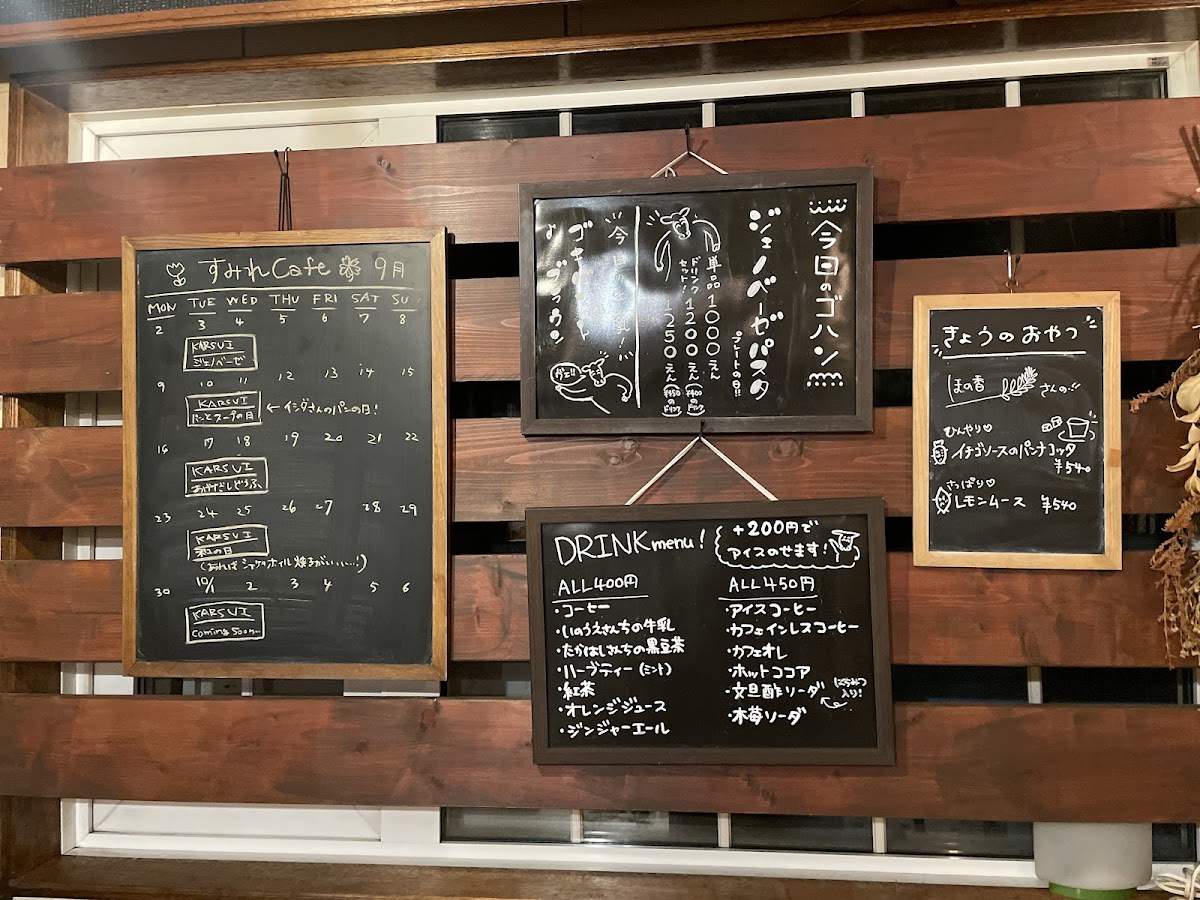 すみれCafe 9月
MON TUE WED THU FRI SAT SU
2 3 4 5 6 7 8
KARSUI
ジェノベーゼ
9 10 11 12 13 14 15
KARSUI
パンとスープの日
←イシダさんのパンの日!
16 17 18 19 20 21 22
KARSUI
23 24 25 26 27 28 29
KARSUI
の日
30 10/1 2 3 4 5 6
KARSUI
coming soon...
今回のゴハン
ジェノバーゼパスタ
プレートの日!!
単品1000えん
ドリンクセット!
1200えん(¥400のドリンク)
1250えん(¥450のドリンク)
今
DRINK menu!
+200円で
アイスのせます!
ALL400円
・コーヒー
・いのうえさんちの牛乳
・たかはしさんちの黒豆茶
・ハーブティー(ミント)
・紅茶
・オレンジジュース
・ジンジャーエール
ALL450円
・アイスコーヒー
・カフェインレスコーヒー
・カフェオレ
・ホットココア
・文旦酢ソーダ
はちみつ
入り!
・木苺ソーダ
きょうのおやつ
ほの香さんの!!
ひんやり♡
イチゴソースのパンナコッタ
¥540
さっぱり♡
レモンムース ¥540